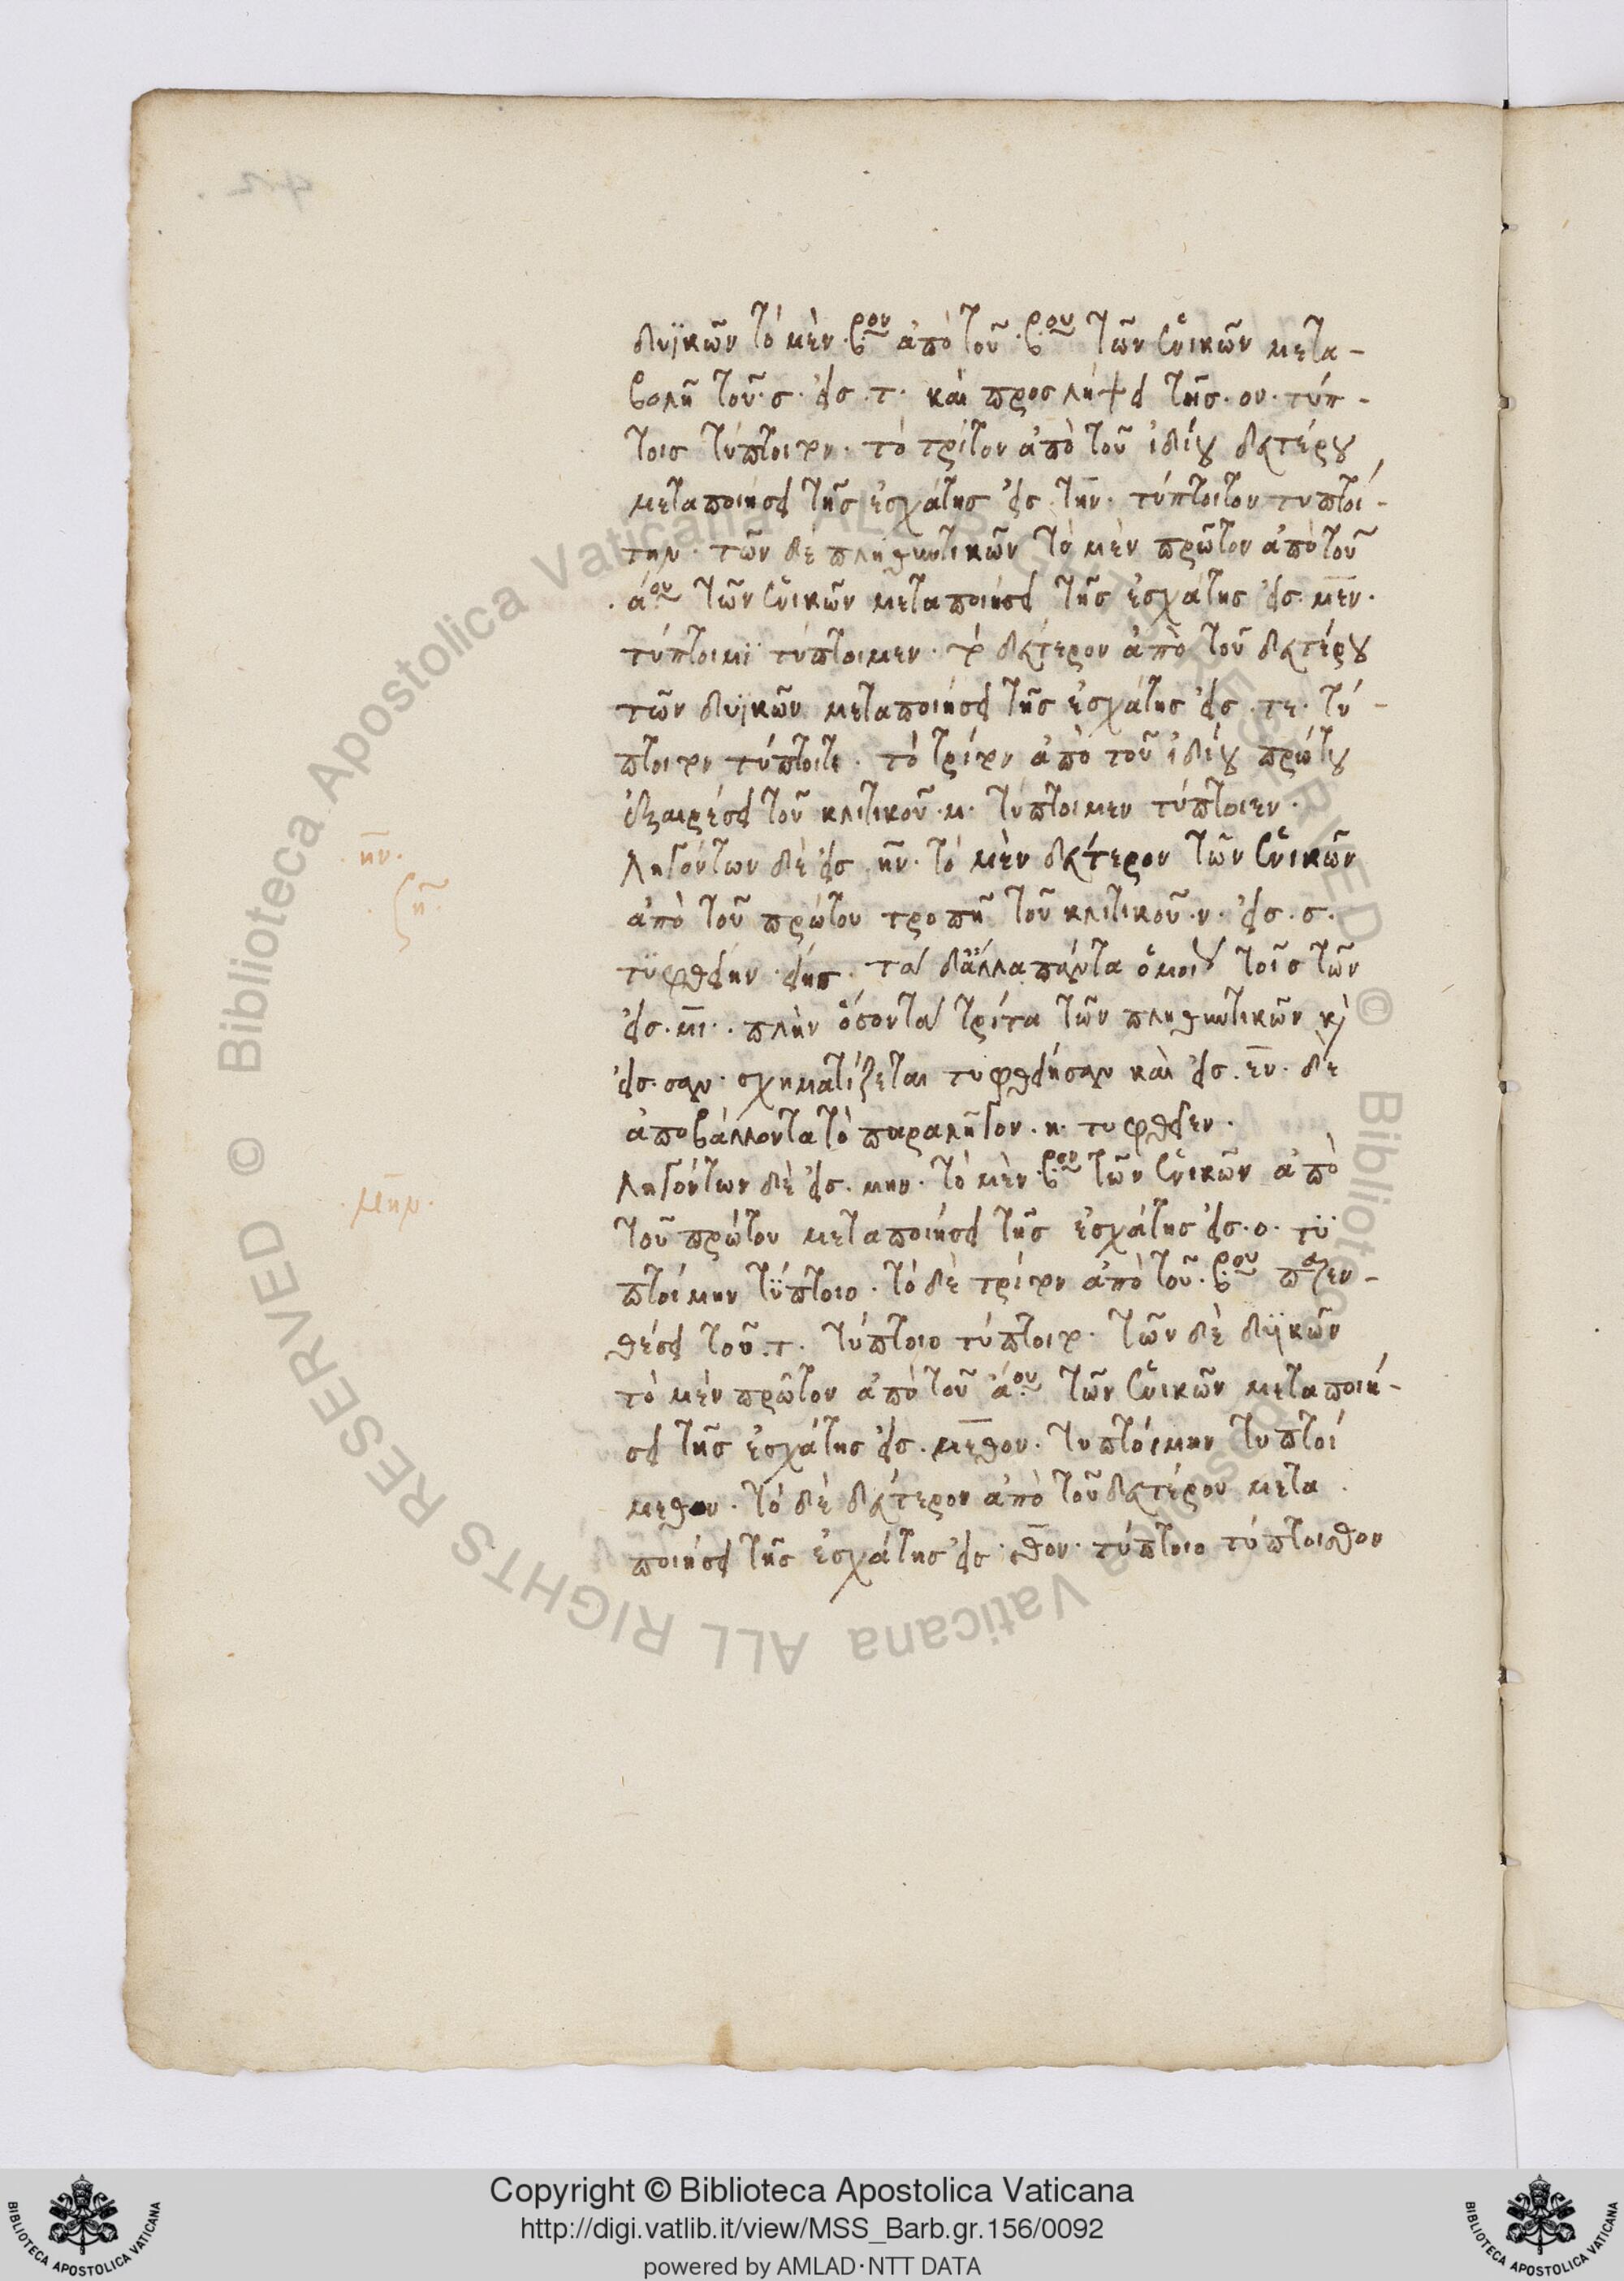 δυϊκῶν τὸ μὲν ·βον ἀπὸ τοῦ ·βου τῶν ἑνικῶν μετα-
βολῇ τοῦ · σ · εἰς · τ · καὶ προσλήψει τῆς · ον · τύπ-
τοις τύπτοιτον · τὸ τρίτον ἀπὸ τοῦ ἰδίου δευτέρου
μεταποιήσει τῆς ἐσχάτης εἰς · την · τύπτοιτον τυπτοί-
την · τῶν δὲ πληθυντικῶν τὸ μὲν πρῶτον ἀπὸ τοῦ
· άου τῶν ἑνικῶν μεταποιήσει τῆς ἐσχάτης εἰς · μεν ·
τύπτοιμϊ τύπτοιμεν · τὸ δεύτερον ἀπὸ τοῦ δευτέρου
τῶν δυϊκῶν μεταποιήσει τῆς ἐσχάτης εἰς · τε · τύ-
πτοιτον τύπτοιτε · τὸ τρίτον ἀπὸ τοῦ ἰδίου πρώτου
ἐξαιρέσει τοῦ κλιτικοῦ · μ · τύπτοιμεν τύπτοιεν ·
· ην ·
Ληγόντων δὲ εἰς · ην · τὸ μὲν δεύτερον τῶν ἑνικῶν
ἀπὸ τοῦ πρώτου τροπῇ τοῦ κλιτικοῦ · ν · εἰς · σ ·
τϋφθείην · είης · τὰ δ' ἄλλα πάντα ὁμοίως τοῖς τῶν
εἰς · μι · · πλὴν ὅσον τὰ τρίτα τῶν πληθυντικῶν κὶ
εἰς · σαν · σχηματίζεται τυφθείησαν καὶ εἰς · εν · δὲ
ἀποβάλλοντα τὸ παραλῆγον · η · τυφθεῖεν ·
· μην ·
Ληγόντων δὲ εἰς · μην · τὸ μὲν ·βον τῶν ἑνικῶν ἀπὸ
τοῦ πρώτου μεταποιήσει τῆς ἐσχάτης εἰς · ο · τϋ
πτοίμην τϋπτοιο · τὸ δὲ τρίτον ἀπὸ τοῦ · βου παρεν-
θέσει τοῦ · τ · τύπτοιο τύπτοιτο · τῶν δὲ δυϊκῶν
τὸ μὲν πρῶτον ἀπὸ τοῦ άου τῶν ἑνικῶν μεταποιή-
σει τῆς ἐσχάτης εἰς · μεθον · τυπτοίμην τυπτοί
μεθον · τὸ δὲ δεύτερον ἀπὸ τοῦ δευτέρου μετα
ποιήσει τῆς ἐσχάτης εἰς · σθον · τύπτοιο τύπτοισθον
Copyright © Biblioteca Apostolica Vaticana
http://digi.vatlib.it/view/MSS_Barb.gr.156/0092
powered by AMLAD·NTT DATA